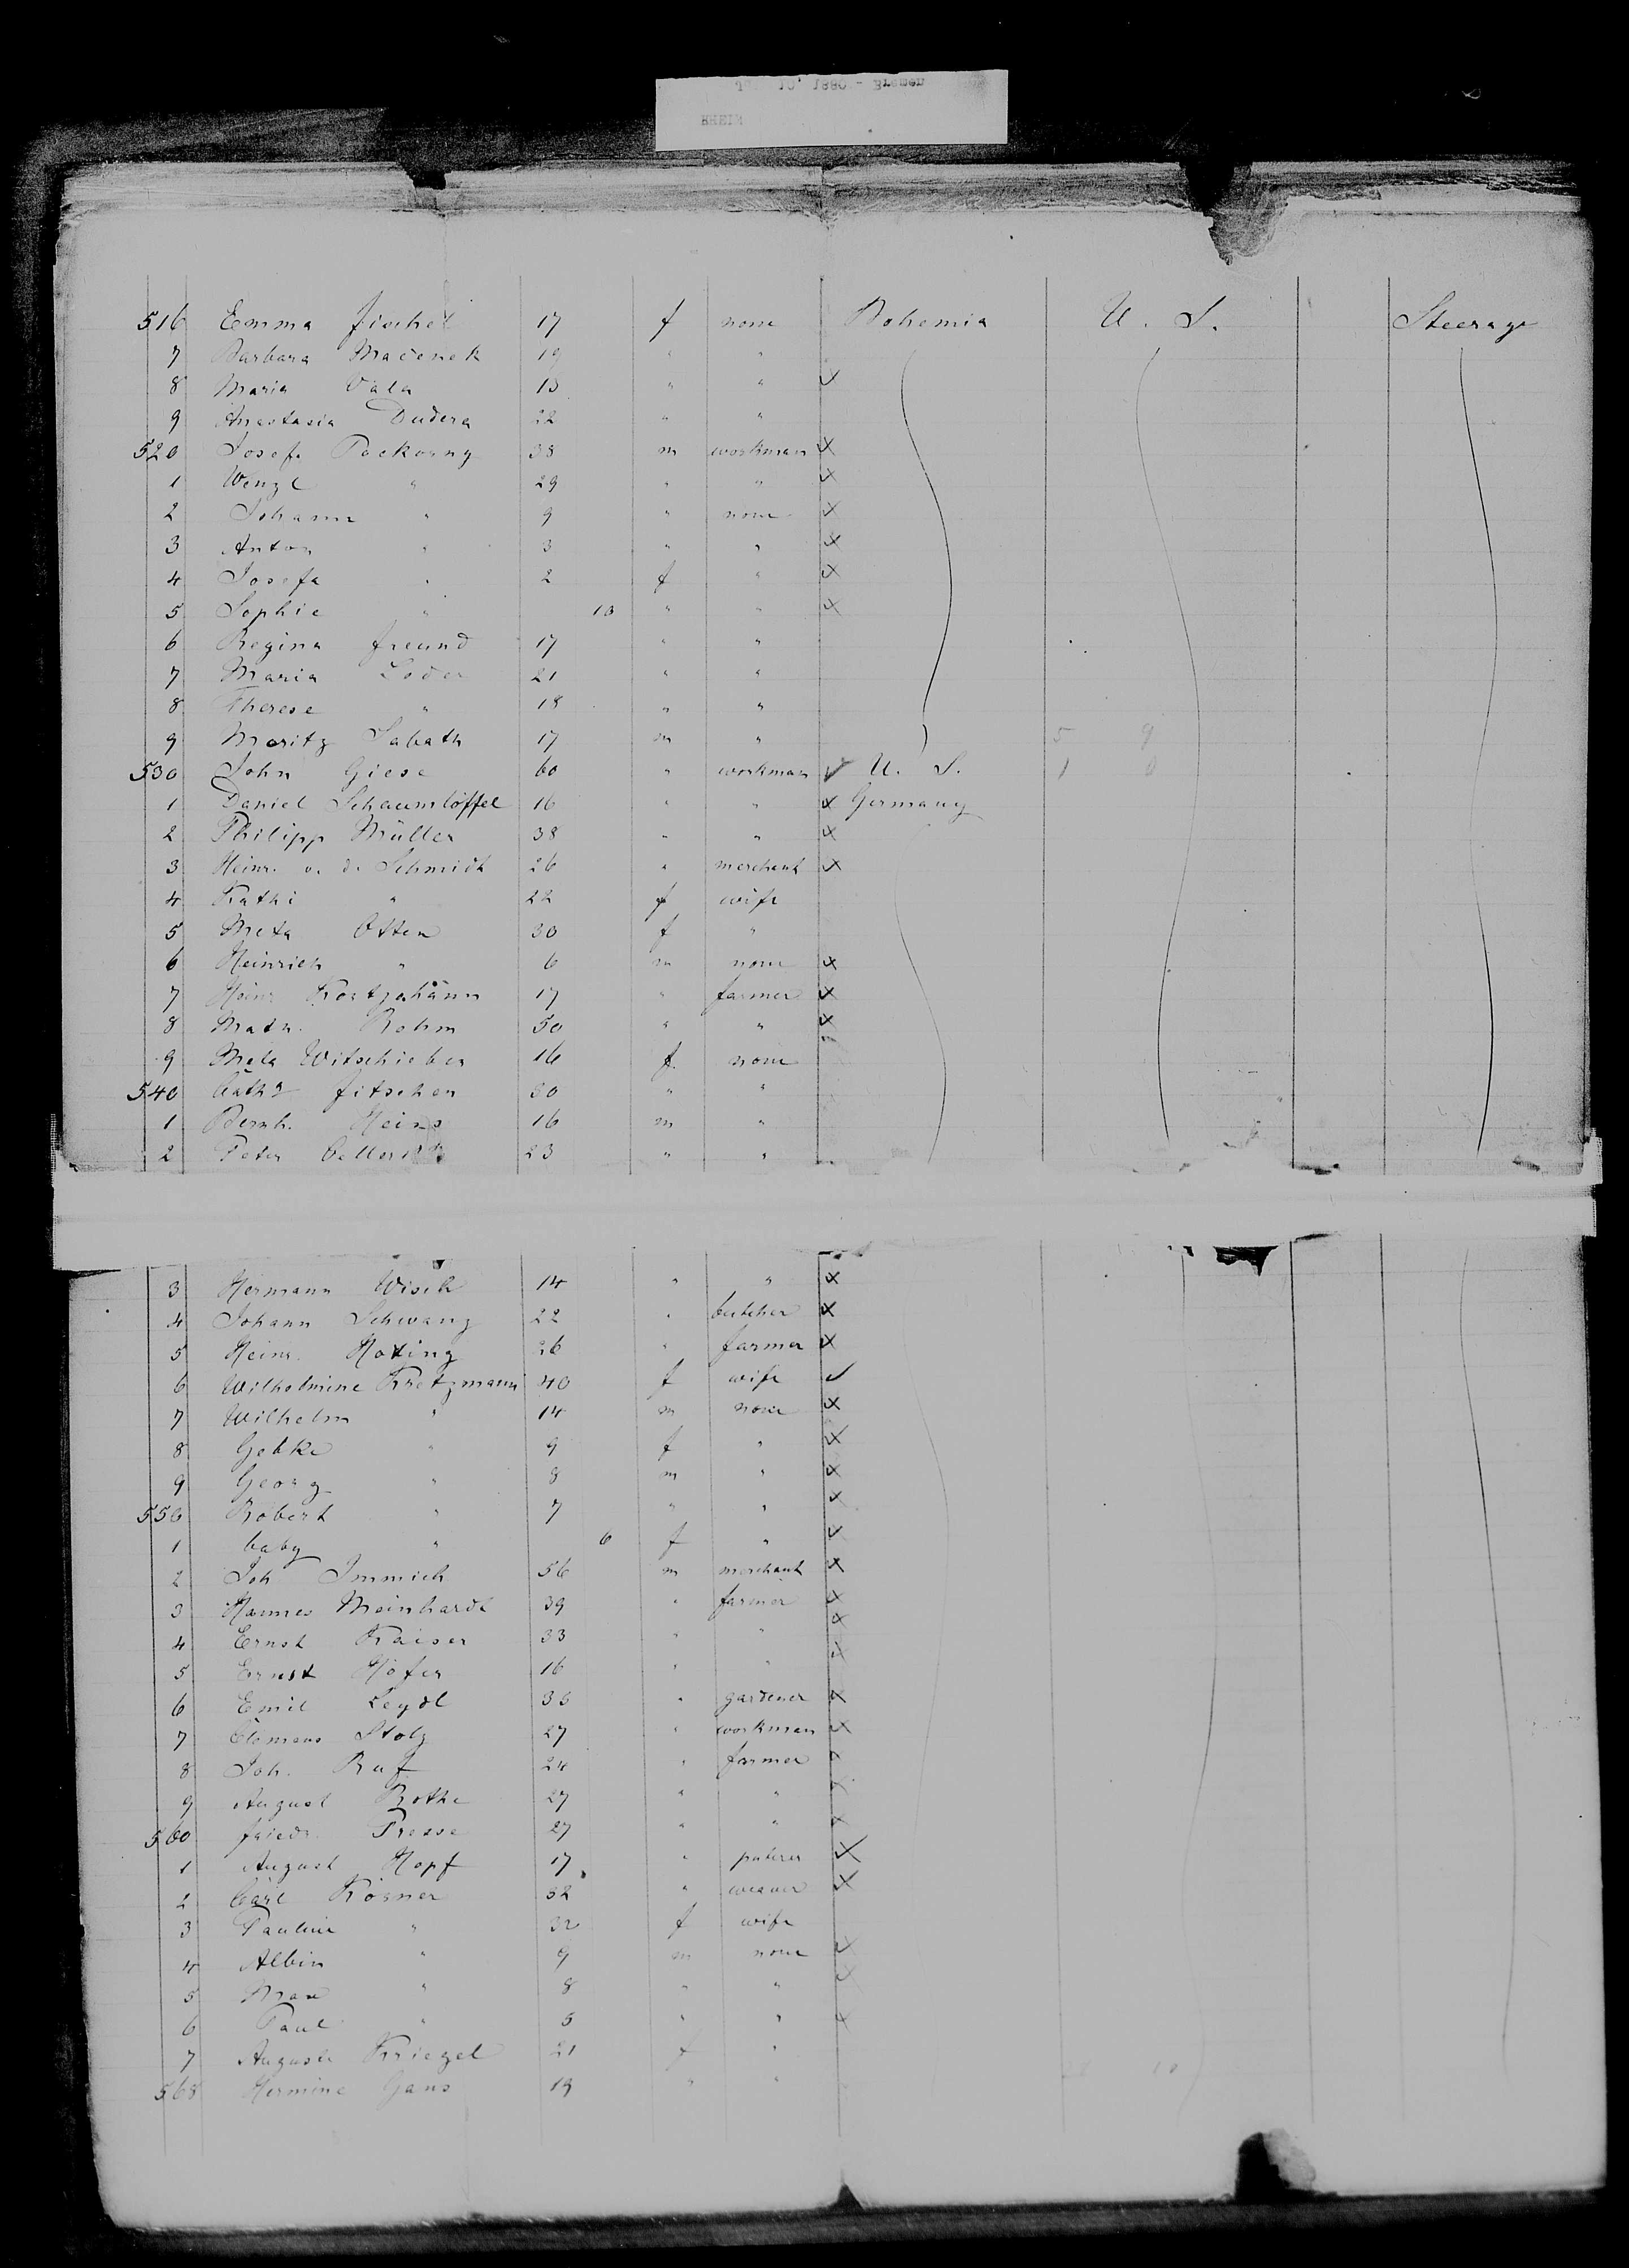 10, 1880 - Bremen
RHEIN
516 Emma Fischel 17 f none Bohemia U. S. Steerage
7 Barbara Macenek 19 " "
8 Maria Vala 15 " "
9 Anastasia Dudera 22 " "
520 Josef Pockorny 38 m workman x
1 Wenzl " 29 " " x
2 Johann " 9 " none x
3 Anton " 3 " " x
4 Josefa " 2 f " x
5 Sophie " 10 " " x
6 Regina Freund 17 " "
7 Maria Loder 21 " "
8 Therese " 18 " "
9 Moritz Sabath 17 m " 5 9
530 John Giese 60 " workman U. S. 1 0
1 Daniel Schaumlöffel 16 " " x Germany
2 Philipp Müller 38 " " x
3 Heinr. v. d. Schmidt 26 " merchant x
4 Kathi " 22 f wife
5 Meta Otten 30 f "
6 Heinrich " 6 m none x
7 Heinr Kortjohann 17 " farmer x
8 Math. Rohm 50 " " x
9 Meta Witschieben 16 f none
540 Cath. Fitschen 30 " "
1 Bernh. Heins 16 m "
2 Peter 23 " "
3 Hermann Wisch 14 " " x
4 Johann Schwanz 22 " butcher x
5 Heinr. Hoting 26 " farmer x
6 Wilhelmine Kretzmann 40 f wife
7 Wilhelm " 14 m none x
8 Gebke " 9 f " x
9 Georg " 8 m " x
550 Robert " 7 " " x
1 baby " 6 f " x
2 Joh Immich 56 m merchant x
3 Hannes Meinhardt 39 " farmer x
4 Ernst Kaiser 33 " " x
5 Ernst Höfer 16 " " x
6 Emil Leydl 36 " gardener x
7 Clemens Stolz 27 " workman x
8 Joh. Ruf 24 " farmer x
9 August Rothe 27 " " x
560 Friedr. Presse 27 " " x
1 August Hopf 17 " x
2 Carl Körner 32 " weaver x
3 Pauline " 32 f wife
4 Albin " 9 m none x
5 Max " 8 " " x
6 Paul " 5 " " x
7 Auguste Kriegel 21 f "
568 Hermine Gans 19 " " 10